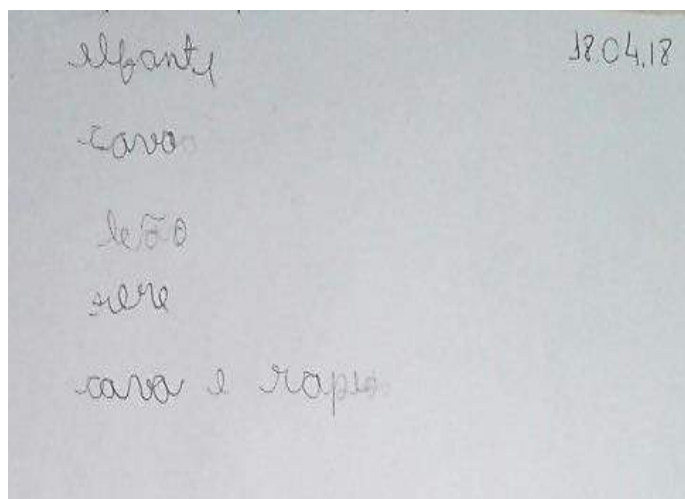 elfante 18.04.18
cavo
leão
rere
cavo e rapido